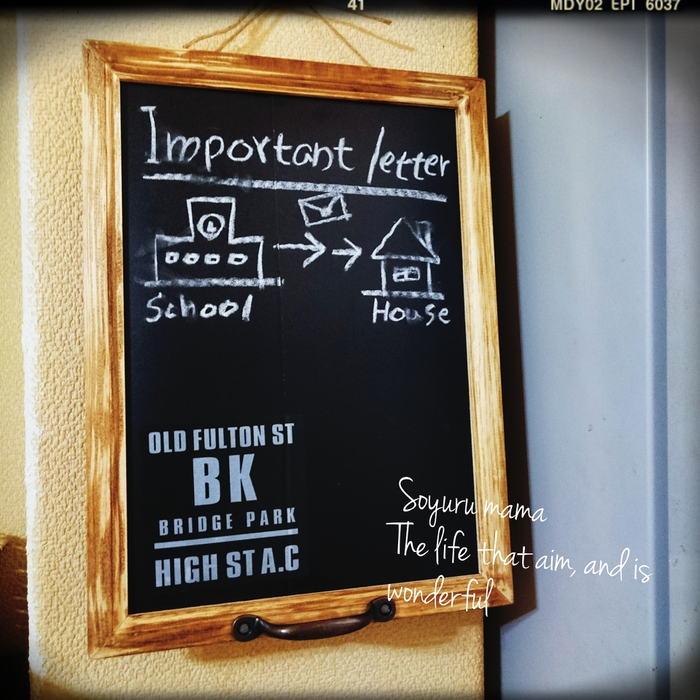 41
MDY02 EPI 6037
Important letter
School
House
OLD FULTON ST
BK
BRIDGE PARK
HIGH ST A.C
Soyuru mama
The life that aim, and is
wonderful